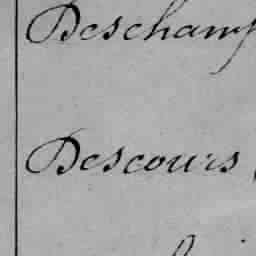 Deschamp
Descours